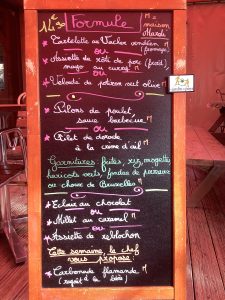 Formule
maison
Mardi
Tartelette au Vacher vendéen
(fromage)
ou
Assiette de rôti de porc (froid)
mayo au curry
ou
Velouté de potiron scit olive
Pilons de poulet
sauce barbecue
ou
Filet de dorade
à la crème d'ail
Garnitures frites, riz, mogettes
haricots verts, fondue de poireaux
ou choux de Bruxelles
Eclair au chocolat
ou
Millet au caramel
ou
Assiette de reblochon
Cette semaine, le chef
vous propose
Carbonade flamande
(ragoût à la bière)